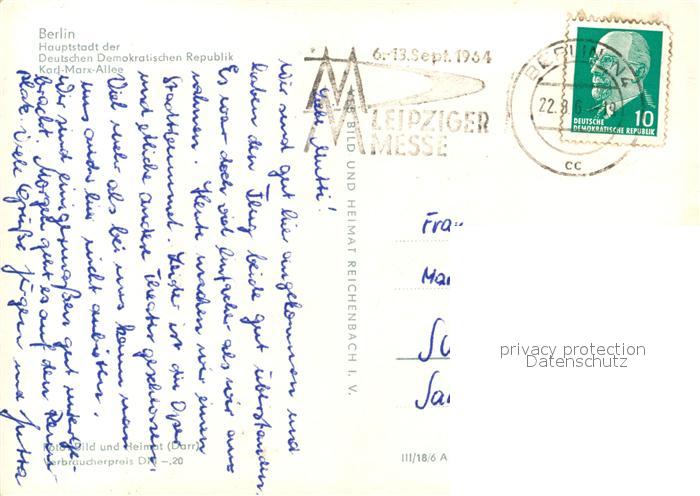 Berlin
Hauptstadt der
Deutschen Demokratischen Republik
Karl-Marx-Allee
6.-13. Sept. 1964
LEIPZIGER
MESSE
BERLIN N4
22.8.6
CC
DEUTSCHE
DEMOKRATISCHE REPUBLIK
10
Liebe Mutti!
wir sind gut hier angekommen und
haben den Flug beide gut überstanden.
Es war doch viel einfacher als wir ann
nahmen. Heute machen wir einen
Stadtbummel. Leider ist die Oper
und etliche andere Theater geschlossen.
Viel mehr als bei uns kann man
uns auch hier nicht anbieten.
Wir sind einigermaßen gut unterge-
bracht. Morgen geht es auf den
Viele Grüße Jürgen und Jutta
BILD UND HEIMAT REICHENBACH I. V.
Fra
Mar
Foto: Bild und Heimat (Darr)
Verbraucherpreis DM -,20
III/18/6 A
privacy protection
Datenschutz